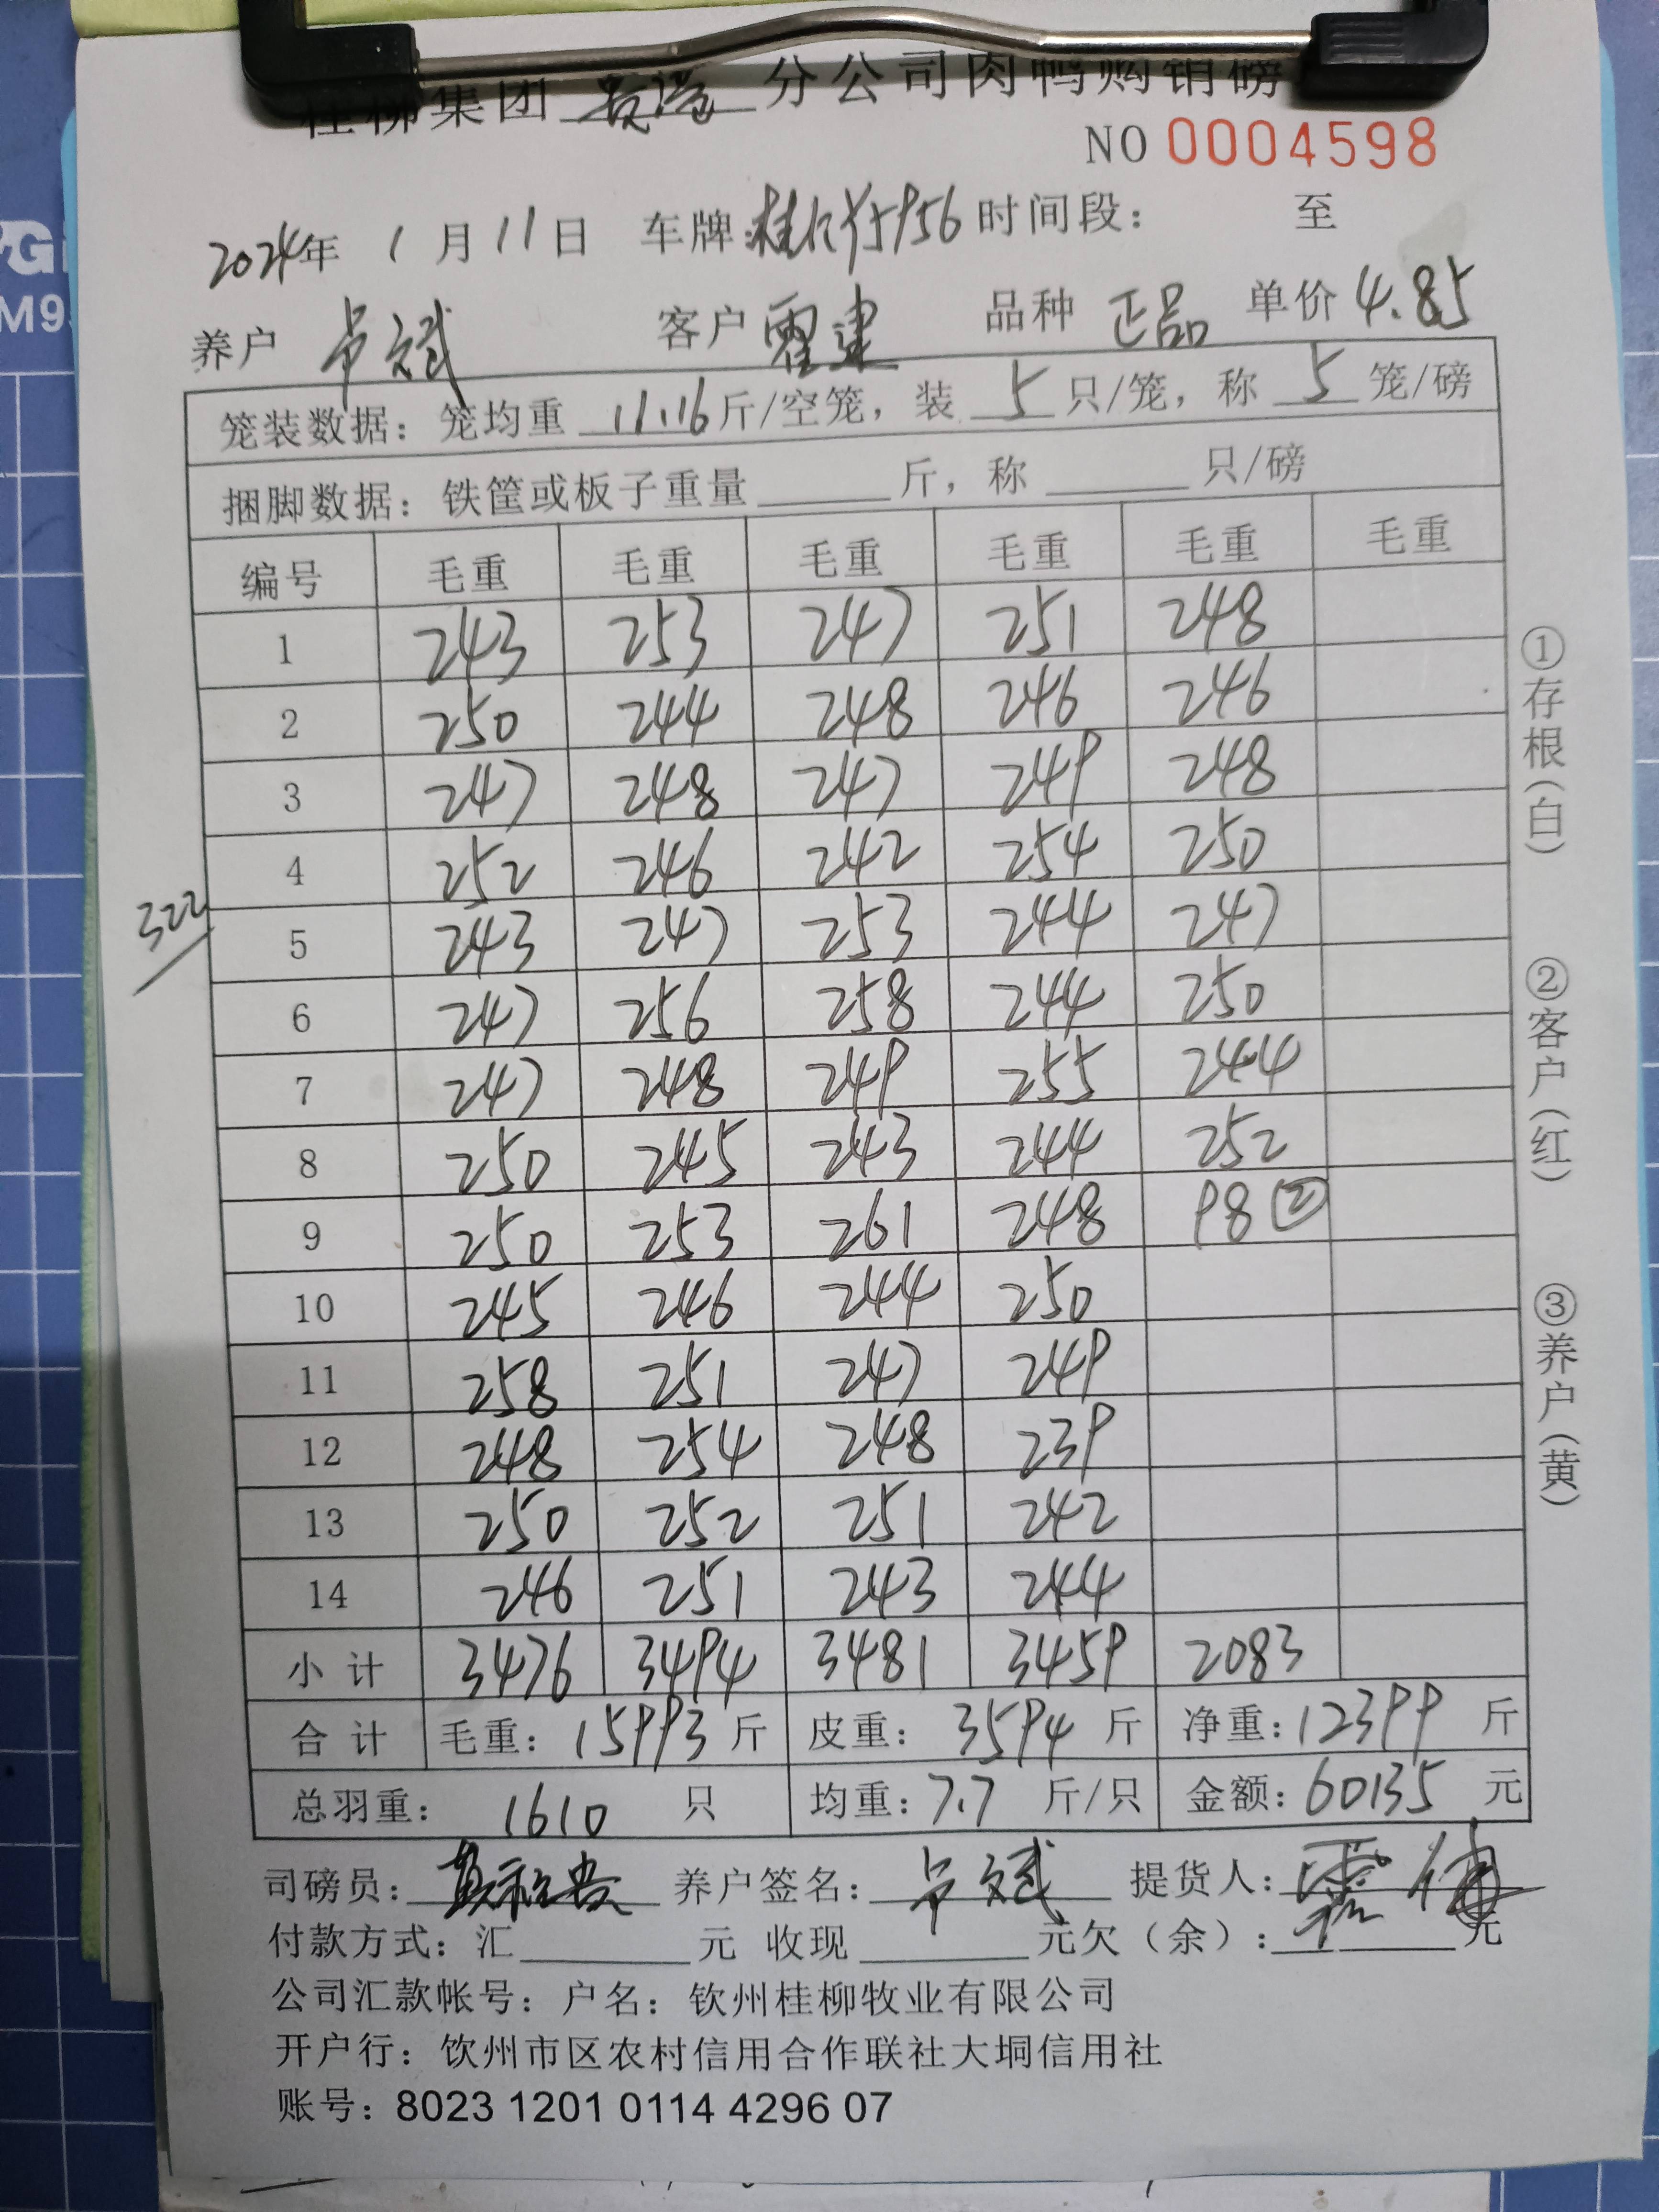 桂柳集团 贵港 分公司肉鸭购销磅
NO 0004598
2024年 1 月 11 日 车牌: 时间段: 至
养户 卢斌 客户 霍建 品种 正品 单价 4.85
笼装数据: 笼均重 11.16 斤/空笼, 装 5 只/笼, 称 5 笼/磅
捆脚数据: 铁筐或板子重量 斤, 称 只/磅
编号 毛重 毛重 毛重 毛重 毛重 毛重
1 243 253 247 251 248
2 250 244 248 246 246
3 247 248 247 249 248
4 252 246 242 254 250
322
5 243 247 253 244 247
6 247 256 258 244 250
7 247 248 249 255 244
8 250 245 243 244 252
9 250 253 261 248 98 ②
10 245 246 244 250
11 258 251 247 249
12 248 254 248 239
13 250 252 251 242
14 246 251 243 244
小计 3476 3494 3481 3459 2083
合计 毛重: 15993 斤 皮重: 3594 斤 净重: 12399 斤
总羽重: 1610 只 均重: 7.7 斤/只 金额: 60135 元
司磅员: 养户签名: 卢斌 提货人:
付款方式: 汇 元 收现 元欠(余): 元
公司汇款帐号: 户名: 钦州桂柳牧业有限公司
开户行: 钦州市区农村信用合作联社大垌信用社
账号: 8023 1201 0114 4296 07
①存根(白) ②客户(红) ③养户(黄)